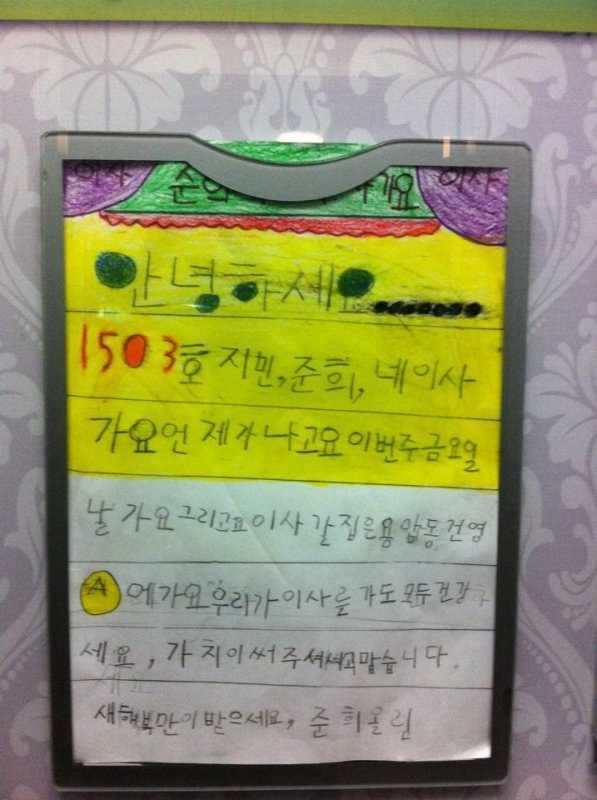 이사 준희 가요 이사
안녕하세요
1503호 지민, 준희, 네이사
가요언제가냐고요이번주금요일
날가요그리고요이사갈집은용암동건영
A에가요우리가이사를가도모두건강하
세요, 가치이써주셔서고맙습니다.
새해복만이받으세요, 준희올린